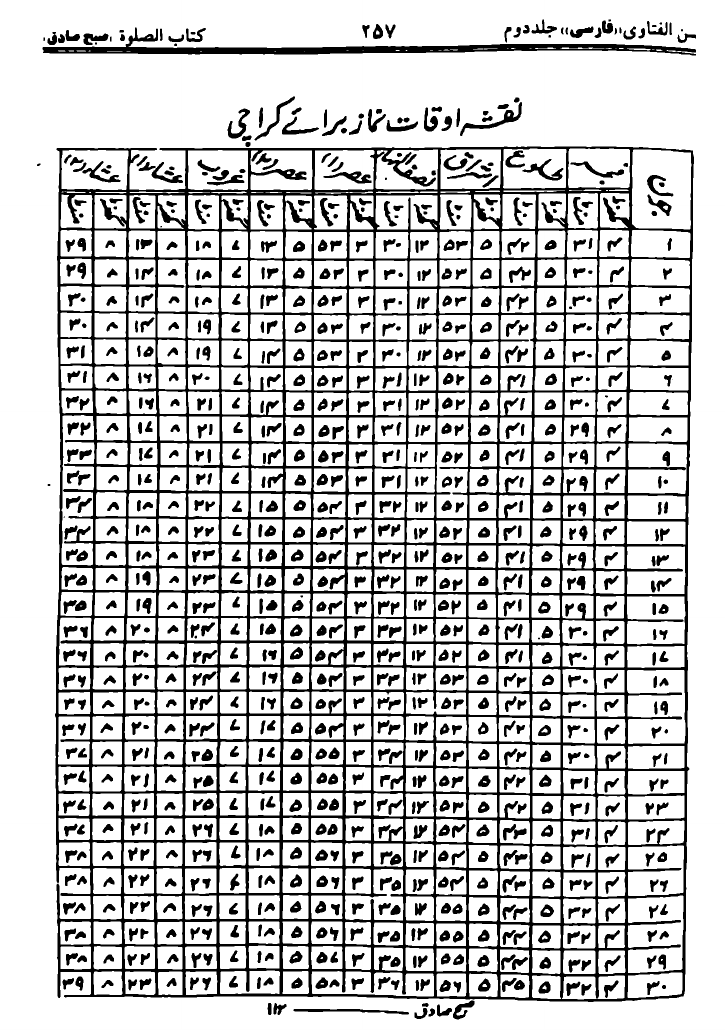 سن الفتاوی ((فارسی)) جلد دوم ۲۵۷ کتاب الصلوة ,صبح صادق,
نقشہ اوقات نماز برائے کراچی
جون فجر طلوع اشراق نصف النہار عصر(۱) عصر(۲) غروب عشاء(۱) عشاء(۲)
گھنٹہ منٹ گھنٹہ منٹ گھنٹہ منٹ گھنٹہ منٹ گھنٹہ منٹ گھنٹہ منٹ گھنٹہ منٹ گھنٹہ منٹ گھنٹہ منٹ
۱ ۴ ۳۱ ۵ ۴۲ ۵ ۵۳ ۱۲ ۳۰ ۳ ۵۳ ۵ ۱۳ ۷ ۱۸ ۸ ۱۳ ۸ ۲۹
۲ ۴ ۳۰ ۵ ۴۲ ۵ ۵۳ ۱۲ ۳۰ ۳ ۵۳ ۵ ۱۳ ۷ ۱۸ ۸ ۱۴ ۸ ۲۹
۳ ۴ ۳۰ ۵ ۴۲ ۵ ۵۳ ۱۲ ۳۰ ۳ ۵۳ ۵ ۱۳ ۷ ۱۸ ۸ ۱۴ ۸ ۳۰
۴ ۴ ۳۰ ۵ ۴۲ ۵ ۵۳ ۱۲ ۳۰ ۳ ۵۳ ۵ ۱۳ ۷ ۱۹ ۸ ۱۴ ۸ ۳۰
۵ ۴ ۳۰ ۵ ۴۲ ۵ ۵۳ ۱۲ ۳۰ ۳ ۵۳ ۵ ۱۴ ۷ ۱۹ ۸ ۱۵ ۸ ۳۱
۶ ۴ ۳۰ ۵ ۴۱ ۵ ۵۲ ۱۲ ۳۱ ۳ ۵۳ ۵ ۱۴ ۷ ۲۰ ۸ ۱۶ ۸ ۳۱
۷ ۴ ۳۰ ۵ ۴۱ ۵ ۵۲ ۱۲ ۳۱ ۳ ۵۳ ۵ ۱۴ ۷ ۲۱ ۸ ۱۶ ۸ ۳۲
۸ ۴ ۲۹ ۵ ۴۱ ۵ ۵۲ ۱۲ ۳۱ ۳ ۵۳ ۵ ۱۴ ۷ ۲۱ ۸ ۱۷ ۸ ۳۲
۹ ۴ ۲۹ ۵ ۴۱ ۵ ۵۲ ۱۲ ۳۱ ۳ ۵۳ ۵ ۱۴ ۷ ۲۱ ۸ ۱۷ ۸ ۳۳
۱۰ ۴ ۲۹ ۵ ۴۱ ۵ ۵۲ ۱۲ ۳۱ ۳ ۵۳ ۵ ۱۴ ۷ ۲۱ ۸ ۱۷ ۸ ۳۳
۱۱ ۴ ۲۹ ۵ ۴۱ ۵ ۵۲ ۱۲ ۳۲ ۳ ۵۴ ۵ ۱۵ ۷ ۲۲ ۸ ۱۸ ۸ ۳۴
۱۲ ۴ ۲۹ ۵ ۴۱ ۵ ۵۲ ۱۲ ۳۲ ۳ ۵۴ ۵ ۱۵ ۷ ۲۲ ۸ ۱۸ ۸ ۳۴
۱۳ ۴ ۲۹ ۵ ۴۱ ۵ ۵۲ ۱۲ ۳۲ ۳ ۵۴ ۵ ۱۵ ۷ ۲۳ ۸ ۱۸ ۸ ۳۵
۱۴ ۴ ۲۹ ۵ ۴۱ ۵ ۵۲ ۱۲ ۳۲ ۳ ۵۴ ۵ ۱۵ ۷ ۲۳ ۸ ۱۹ ۸ ۳۵
۱۵ ۴ ۲۹ ۵ ۴۱ ۵ ۵۲ ۱۲ ۳۲ ۳ ۵۴ ۵ ۱۵ ۷ ۲۳ ۸ ۱۹ ۸ ۳۵
۱۶ ۴ ۳۰ ۵ ۴۱ ۵ ۵۲ ۱۲ ۳۳ ۳ ۵۴ ۵ ۱۵ ۷ ۲۴ ۸ ۲۰ ۸ ۳۶
۱۷ ۴ ۳۰ ۵ ۴۱ ۵ ۵۲ ۱۲ ۳۳ ۳ ۵۴ ۵ ۱۶ ۷ ۲۴ ۸ ۲۰ ۸ ۳۶
۱۸ ۴ ۳۰ ۵ ۴۲ ۵ ۵۳ ۱۲ ۳۳ ۳ ۵۴ ۵ ۱۶ ۷ ۲۴ ۸ ۲۰ ۸ ۳۶
۱۹ ۴ ۳۰ ۵ ۴۲ ۵ ۵۳ ۱۲ ۳۳ ۳ ۵۴ ۵ ۱۶ ۷ ۲۴ ۸ ۲۰ ۸ ۳۶
۲۰ ۴ ۳۰ ۵ ۴۲ ۵ ۵۳ ۱۲ ۳۳ ۳ ۵۴ ۵ ۱۷ ۷ ۲۴ ۸ ۲۰ ۸ ۳۶
۲۱ ۴ ۳۰ ۵ ۴۲ ۵ ۵۳ ۱۲ ۳۴ ۳ ۵۵ ۵ ۱۷ ۷ ۲۵ ۸ ۲۱ ۸ ۳۷
۲۲ ۴ ۳۱ ۵ ۴۲ ۵ ۵۳ ۱۲ ۳۴ ۳ ۵۵ ۵ ۱۷ ۷ ۲۵ ۸ ۲۱ ۸ ۳۷
۲۳ ۴ ۳۱ ۵ ۴۲ ۵ ۵۳ ۱۲ ۳۴ ۳ ۵۵ ۵ ۱۷ ۷ ۲۵ ۸ ۲۱ ۸ ۳۷
۲۴ ۴ ۳۱ ۵ ۴۳ ۵ ۵۴ ۱۲ ۳۴ ۳ ۵۵ ۵ ۱۸ ۷ ۲۶ ۸ ۲۱ ۸ ۳۷
۲۵ ۴ ۳۱ ۵ ۴۳ ۵ ۵۴ ۱۲ ۳۵ ۳ ۵۶ ۵ ۱۸ ۷ ۲۶ ۸ ۲۲ ۸ ۳۸
۲۶ ۴ ۳۲ ۵ ۴۳ ۵ ۵۴ ۱۲ ۳۵ ۳ ۵۶ ۵ ۱۸ ۷ ۲۶ ۸ ۲۲ ۸ ۳۸
۲۷ ۴ ۳۲ ۵ ۴۴ ۵ ۵۵ ۱۲ ۳۵ ۳ ۵۶ ۵ ۱۸ ۷ ۲۶ ۸ ۲۲ ۸ ۳۸
۲۸ ۴ ۳۲ ۵ ۴۴ ۵ ۵۵ ۱۲ ۳۵ ۳ ۵۶ ۵ ۱۸ ۷ ۲۶ ۸ ۲۲ ۸ ۳۸
۲۹ ۴ ۳۲ ۵ ۴۴ ۵ ۵۵ ۱۲ ۳۵ ۳ ۵۷ ۵ ۱۸ ۷ ۲۶ ۸ ۲۲ ۸ ۳۸
۳۰ ۴ ۳۲ ۵ ۴۵ ۵ ۵۶ ۱۲ ۳۶ ۳ ۵۸ ۵ ۱۸ ۷ ۲۶ ۸ ۲۳ ۸ ۳۹
صبح صادق ــــــــ ۱۱۲